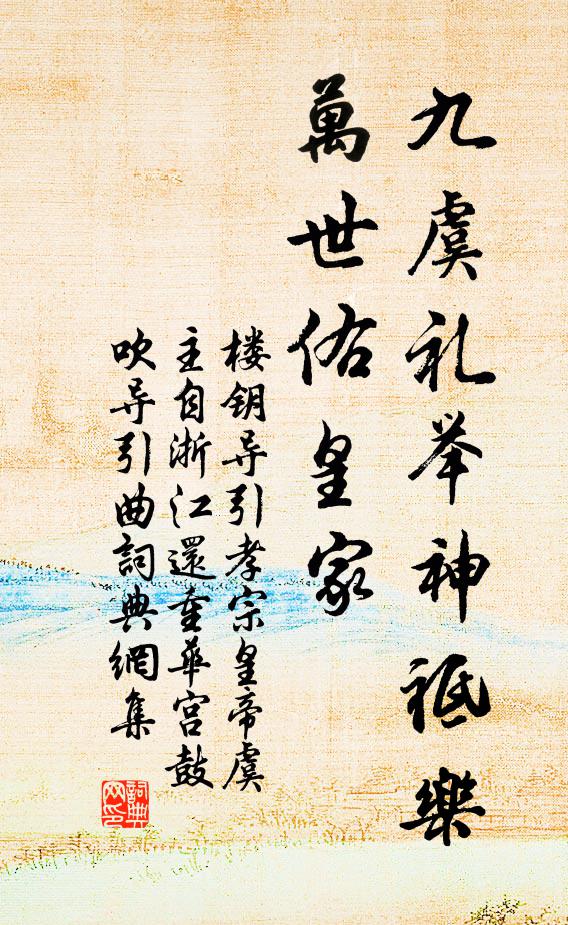 九虞礼举神祗樂
萬世佑皇家
楼钥导引孝宗皇帝虞
主自浙江還重華宫鼓
吹导引曲詞典網集
詞典
网印